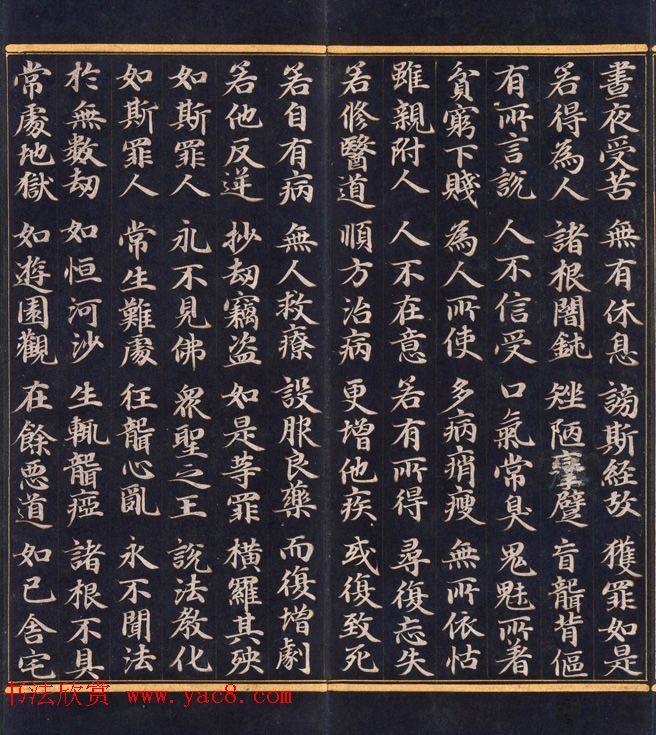 晝夜受苦 無有休息 謗斯經故 獲罪如是
若得為人 諸根闇鈍 矬陋攣躄 盲聾背傴
有所言說 人不信受 口氣常臭 鬼魅所著
貧窮下賤 為人所使 多病痟瘦 無所依怙
雖親附人 人不在意 若有所得 尋復忘失
若修醫道 順方治病 更增他疾 或復致死
若自有病 無人救療 設服良藥 而復增劇
若他反逆 抄劫竊盜 如是等罪 橫羅其殃
如斯罪人 永不見佛 眾聖之王 說法教化
如斯罪人 常生難處 狂聾心亂 永不聞法
於無數劫 如恒河沙 生輒聾瘂 諸根不具
常處地獄 如遊園觀 在餘惡道 如已舍宅
书法欣赏 www.yac8.com